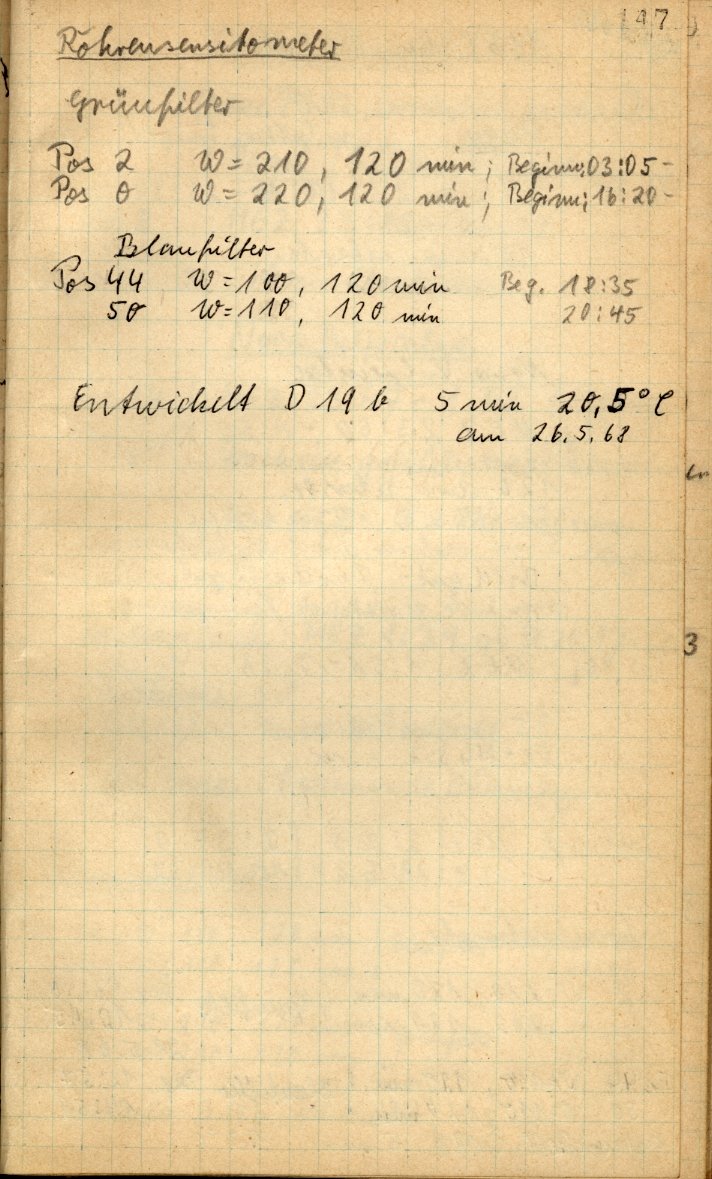 147
Röhrensensitometer
Grünfilter
Pos 2 W=210, 120 min; Beginn: 03:05-
Pos 0 W=220, 120 min; Beginn: 16:20-
Blaufilter
Pos 44 W=100, 120 min Beg. 18:35
50 W=110, 120 min 20:45
Entwickelt D 19 b 5 min 20,5°C
am 26.5.68
3